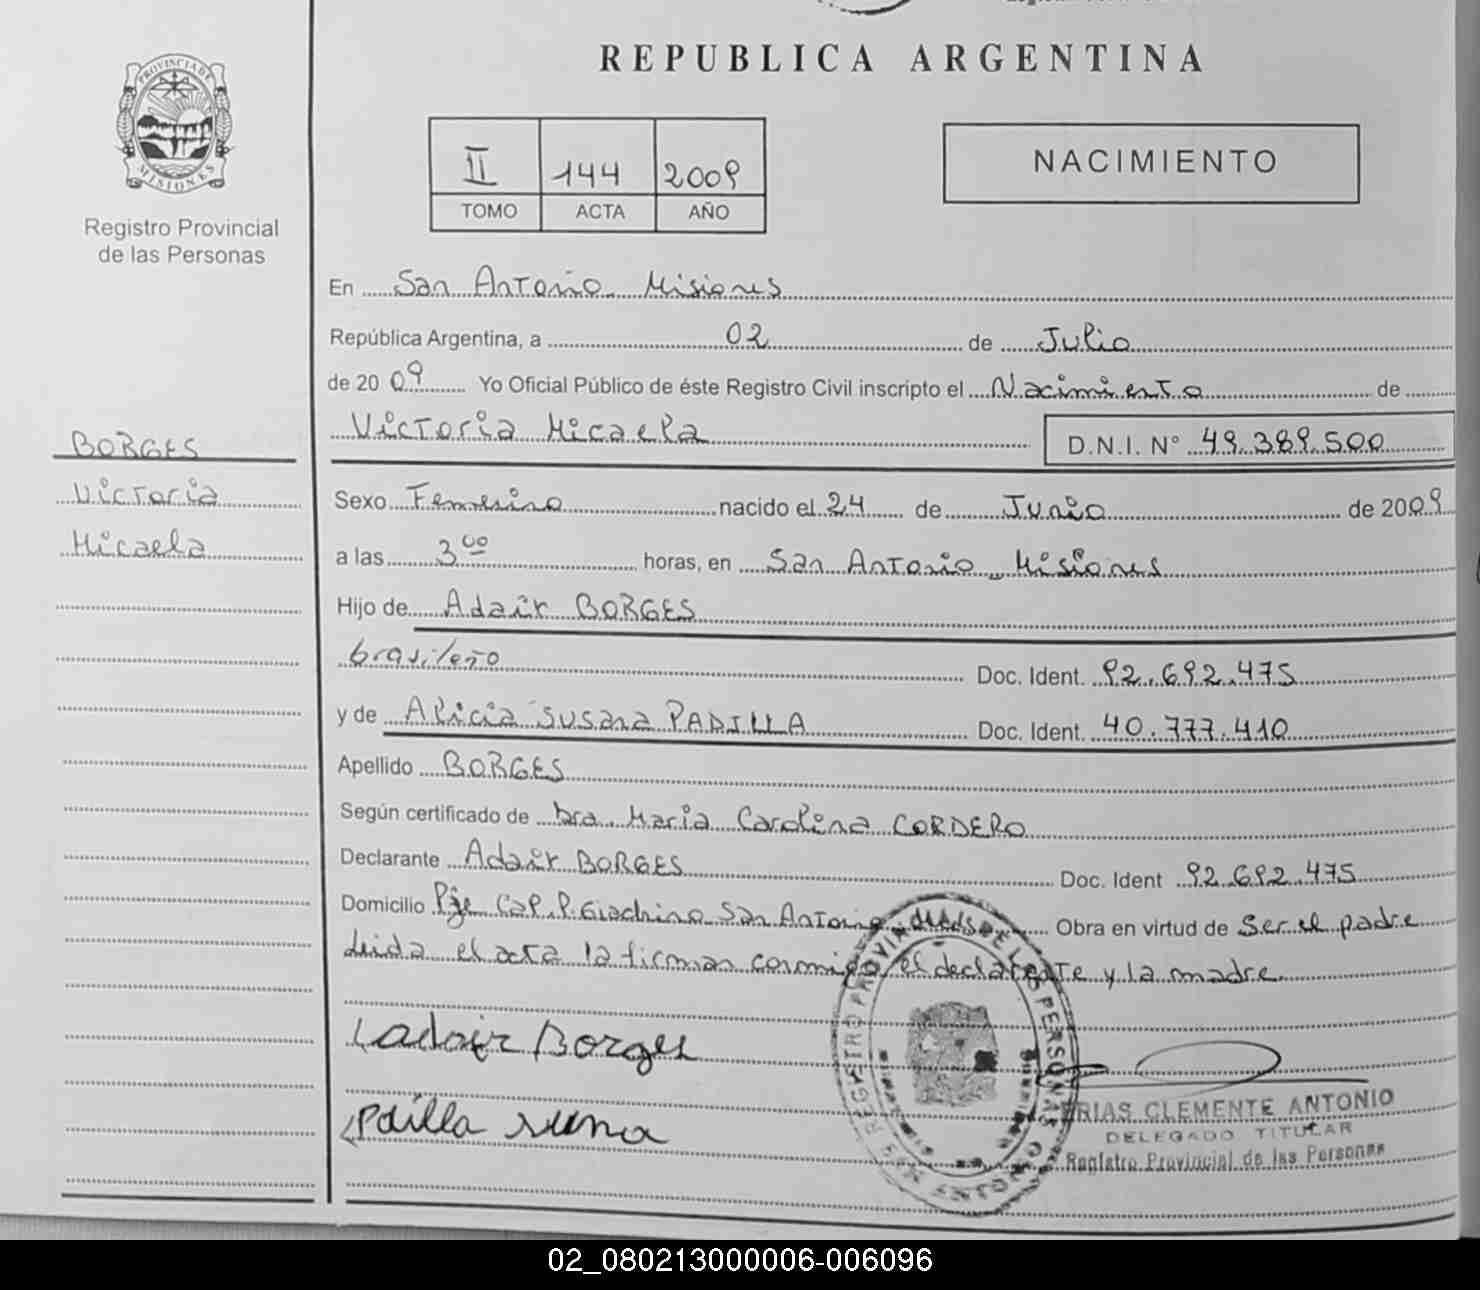 REPUBLICA ARGENTINA
PROVINCIA DE
MISIONES
Registro Provincial
de las Personas
II 144 2009
TOMO ACTA AÑO
NACIMIENTO
En San Antonio Misiones
República Argentina, a 02 de Julio
de 20 09 Yo Oficial Público de éste Registro Civil inscripto el Nacimiento de
Victoria Micaela D.N.I. N° 49.389.500
BORGES
Victoria
Micaela
Sexo Femenino nacido el 24 de Junio de 2009
a las 3 00 horas, en San Antonio Misiones
Hijo de Adair BORGES
brasileño Doc. Ident. 92.692.475
y de Alicia Susana PADILLA Doc. Ident. 40.777.410
Apellido BORGES
Según certificado de Dra. Maria Carolina CORDERO
Declarante Adair BORGES Doc. Ident 92.692.475
Domicilio Pje Cap. P. Giachino San Antonio Obra en virtud de Ser el padre
Leida el acta la firman conmigo el declarante y la madre.
ladair Borges
Padilla
REGISTRO PROVINCIAL DE LAS PERSONAS
CLEMENTE ANTONIO
DELEGADO TITULAR
Registro Provincial de las Personas
02_080213000006-006096